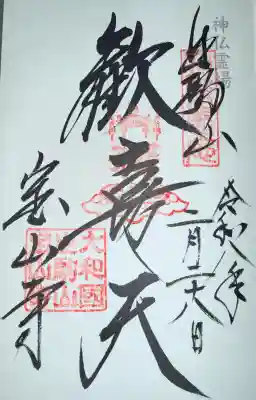 神仏霊場
生駒山
令和八年
二月二十八日
歓喜天
宝山寺
大和國
生駒山